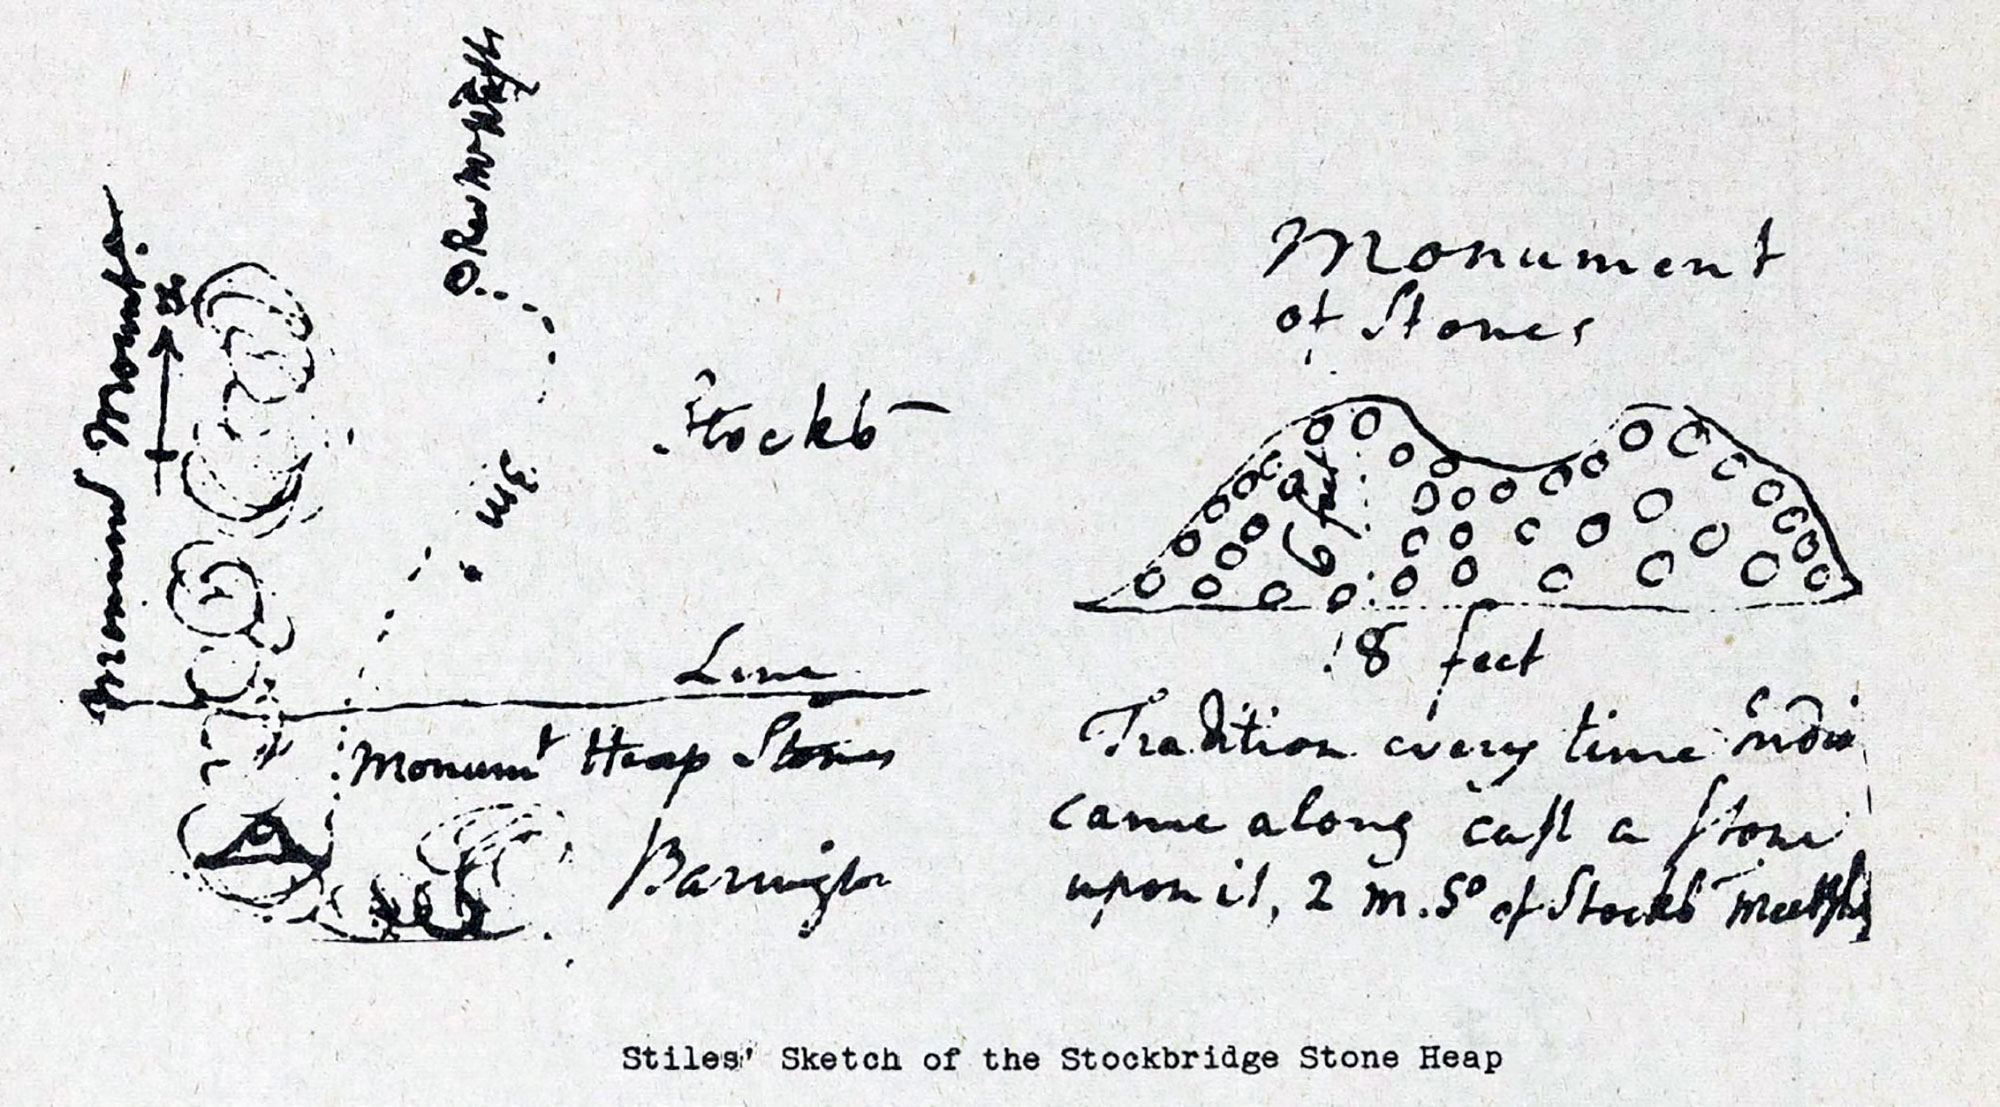 Monum Mount.
Rev Mr West
3m
Stockb
Line
Monumt Heap Stones
Barrington
Monument
of Stones
6 feet
18 feet
Tradition every time Indi
came along cast a stone
upon it, 2 m. So of Stockb Meet
Stiles' Sketch of the Stockbridge Stone Heap